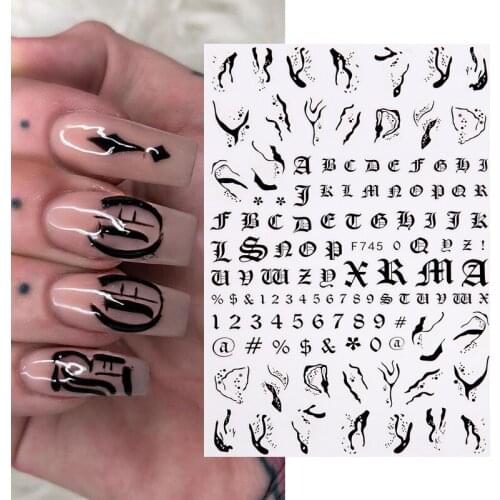 A B C D E F G H I
J K L M N O P Q R
F B C D E F G H I J K
L S N O P F745 O Q Y Z !
U V W Z U V W X R M A
% $ & 1 2 3 4 5 6 7 8 9 S T U V W X
1 2 3 4 5 6 7 8 9 #
@ # % $ & * 0 @